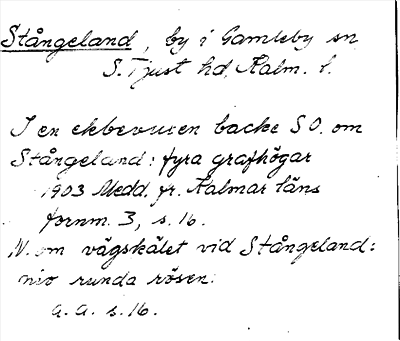 Stångeland, by i Gamleby sn
S. Tjust hd, Kalm. l.
I en ekbevuxen backe SO. om
Stångeland: fyra grafhögar
1903 Medd. fr. Kalmar läns
fornm. 3, s. 16.
N. om vägskälet vid Stångeland:
nio runda rösen.
a. a. s. 16.